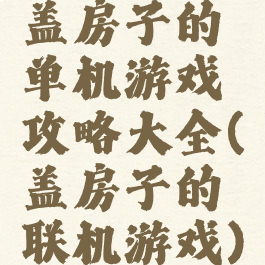 盖房子的
单机游戏
攻略大全(
盖房子的
联机游戏)